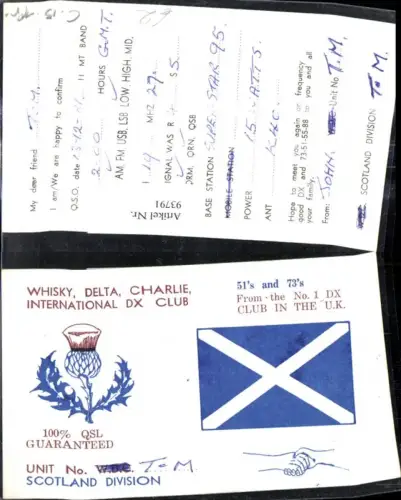 My dear friend T.M.
I am/We are happy to confirm
Q.S.O. date 11 MT BAND
HOURS G.M.T.
AM, FM USB, LSB LOW, HIGH, MID,
MHZ 27
SIGNAL WAS R S 5
QRM, QRN, QSB
BASE STATION SUPER STAR 95.
MOBILE STATION
POWER 15 WATTS
ANT
Hope to meet you again frequency
good DX and 73-51-55-88 you and all
your family.
From: JOHN. Unit No T.M.
SCOTLAND DIVISION T.M
Artikel Nr.
93791
WHISKY, DELTA, CHARLIE,
INTERNATIONAL DX CLUB
51's and 73's
From the No. 1 DX
CLUB IN THE U.K.
100% QSL
GUARANTEED
UNIT No. W.D.C. T.M.
SCOTLAND DIVISION